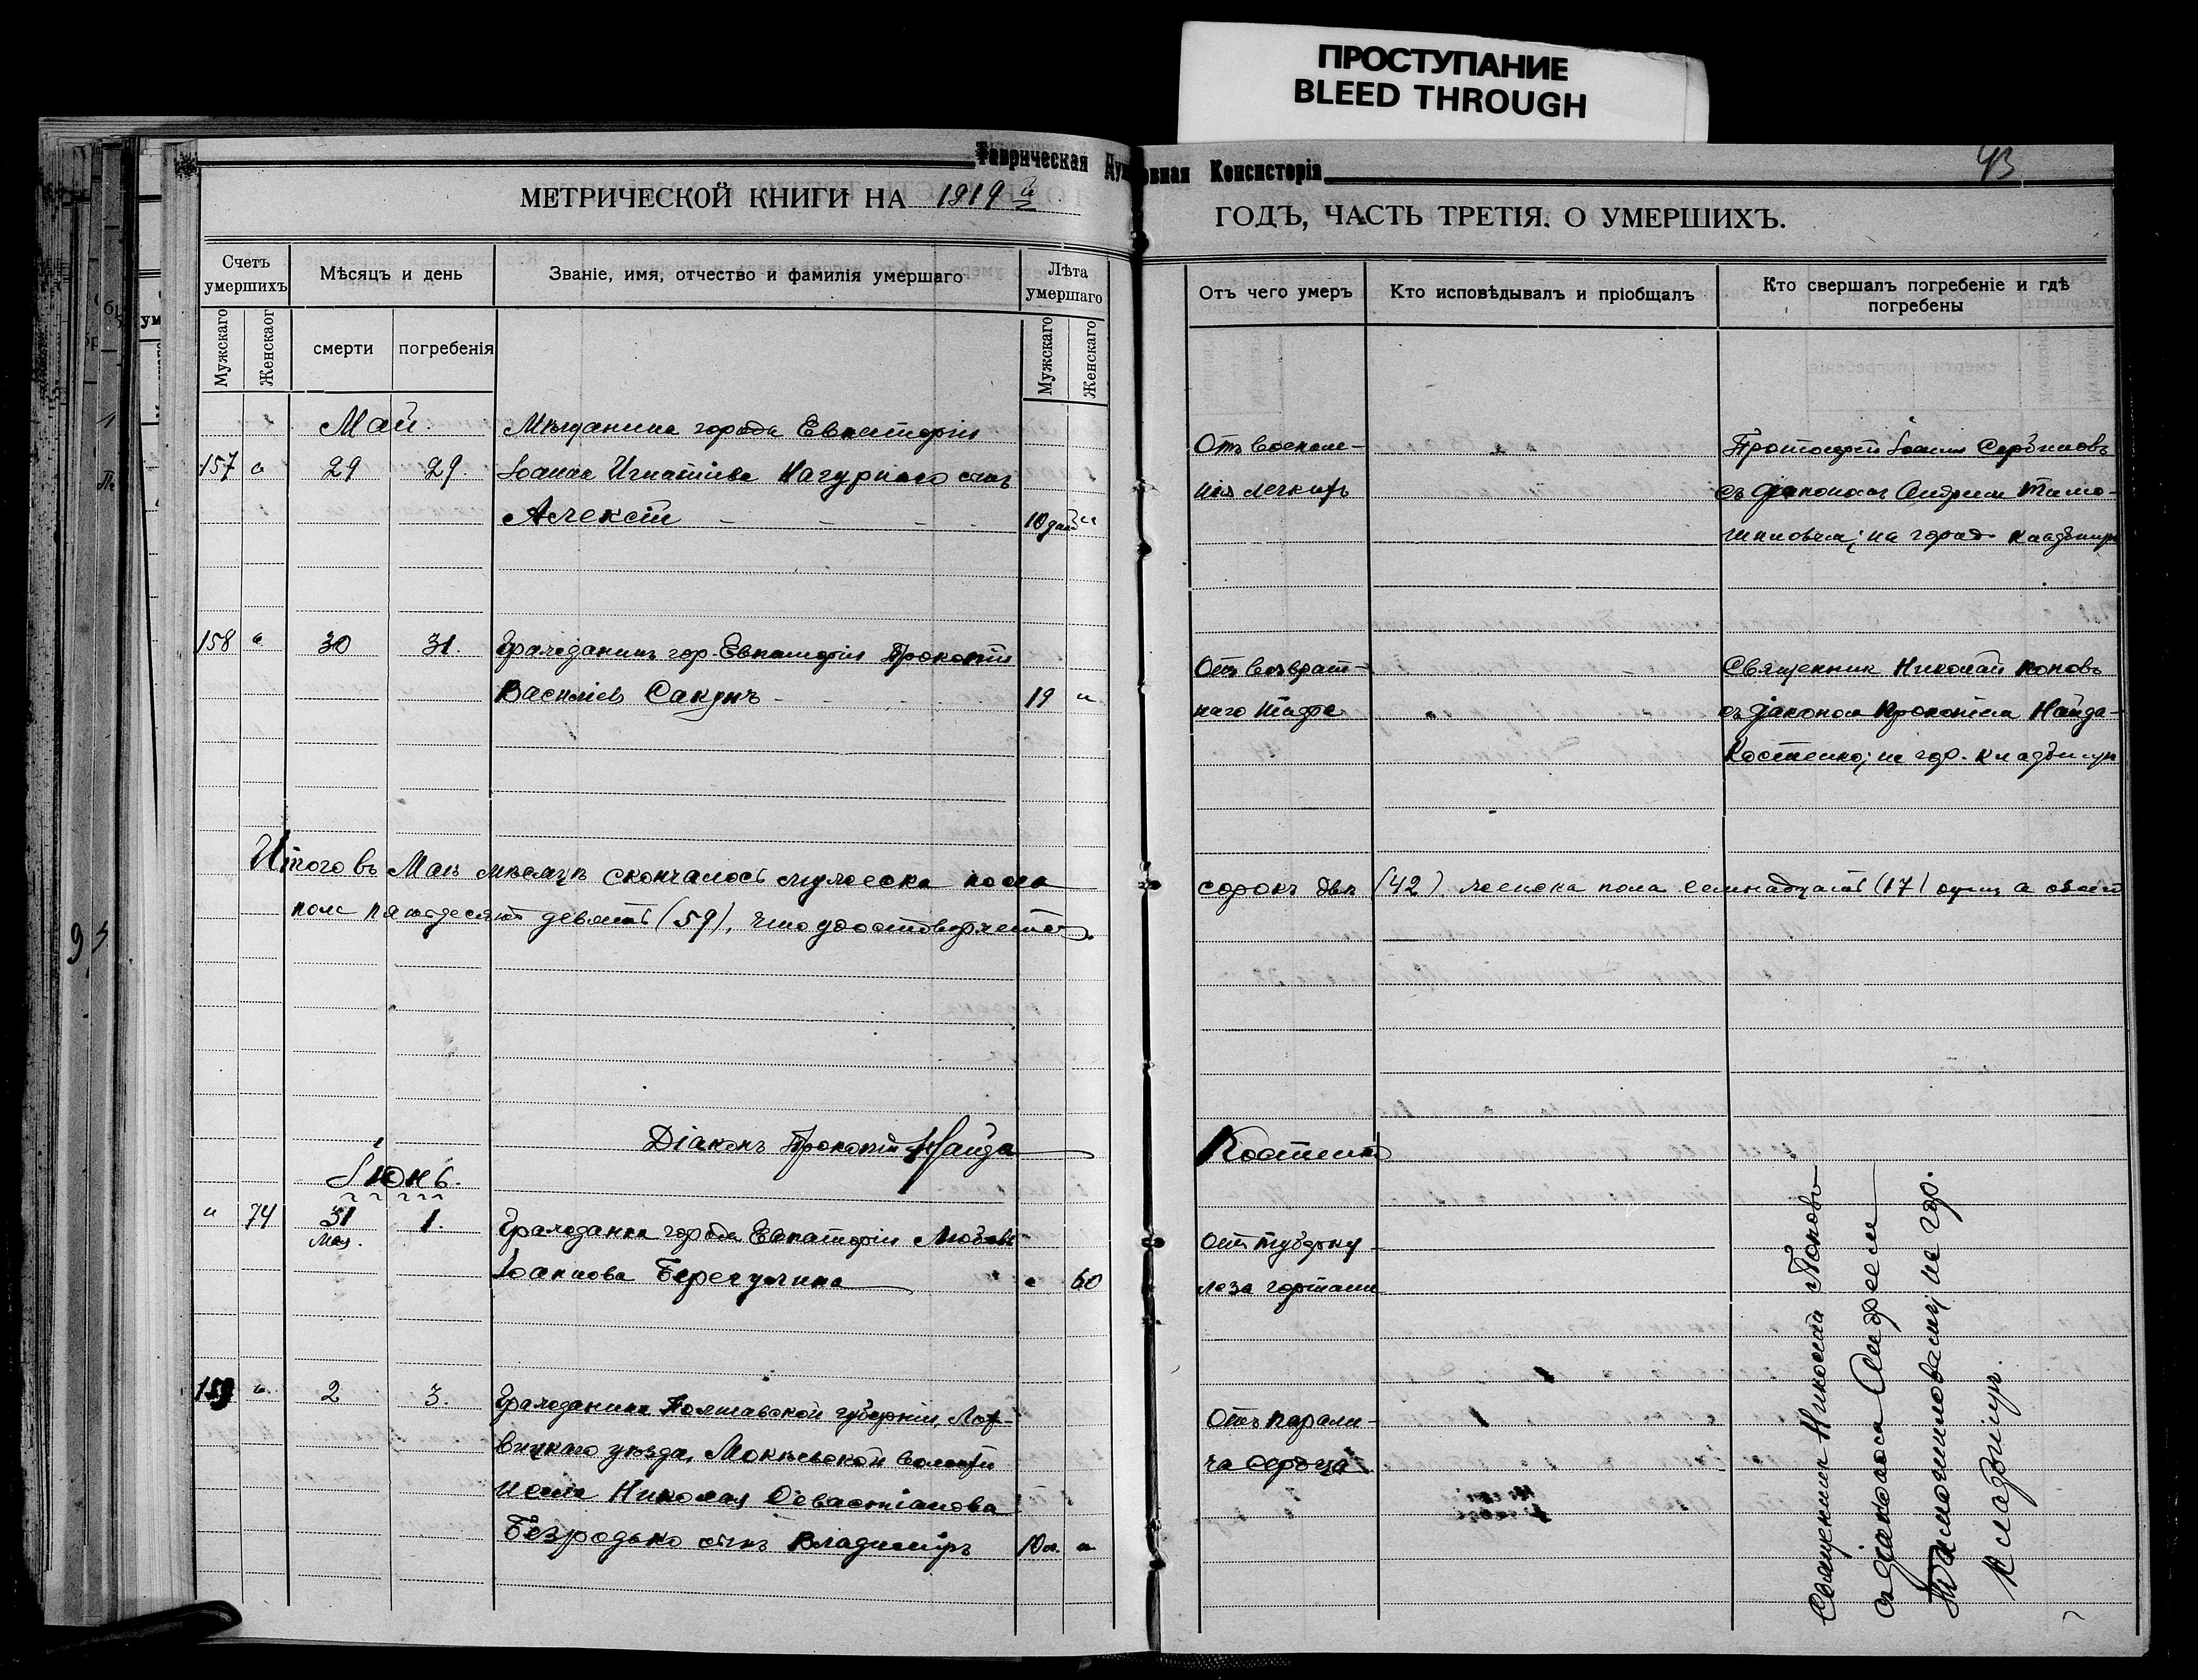 ПРОСТУПАНИЕ
BLEED THROUGH
Таврическая Духовная Консисторія
43
МЕТРИЧЕСКОЙ КНИГИ НА 1919й
ГОДЪ, ЧАСТЬ ТРЕТІЯ. О УМЕРШИХЪ.
Счетъ умершихъ
Мѣсяцъ и день
Званіе, имя, отчество и фамилія умершаго
Лѣта умершаго
Мужскаго
Женскаог
смерти
погребенія
Мужскаго
Женскаго
Май.
Мѣщанина города Евпаторіи
157 " 29 29. Іоанна Игнатіева Нагурнаго сынъ
Алексій - - - - 10 дней "
158 " 30 31. Гражданинъ гор. Евпаторіи Прокопій
Василіев Сакунъ - 19 "
Итого въ Маѣ мѣсяцѣ скончалось мужеска пола
пола пятьдесятъ девять (59), что удостовѣряетъ
Діаконъ Прокопій Найда
Іюнь.
" 74 31 1. Гражданка города Евпаторіи Любовь
Мая.
Іоаннова Беречугина " 60
159 " 2 3. Гражданина Полтавской губерніи, Лох-
вицкаго уѣзда, Мокіевской волости
Николая Севастіанова
Безродько сынъ Владиміръ 10 м. "
9
Отъ чего умеръ
Кто исповѣдывалъ и пріобщалъ
Кто свершалъ погребеніе и гдѣ
погребены
Отъ воспале-
нія легкихъ
Протоіерей Іоаннъ Сербиновъ
съ діакономъ Андреем Тимо-
шиновым; на город. кладбищѣ
Отъ возврат-
наго тифа
Священник Николай Поповъ
съ діакономъ Прокопіем Найда-
Костенко; на гор. кладбищѣ
сорокъ два (42), женска пола семнадцать (17) а обоего
Костенко
Отъ туберку-
леза гортани
Отъ парали-
ча сердца
Священникъ Николай Поповъ
съ діакономъ Андреем
Тимошиновымъ; на гор.
кладбищѣ.